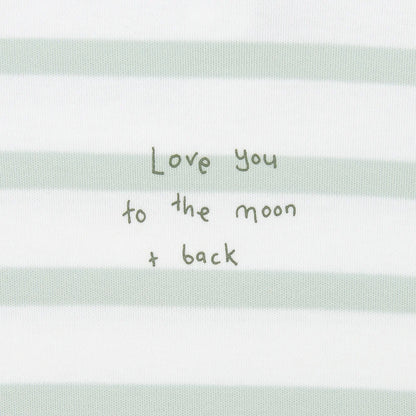 Love you
to the moon
+ back